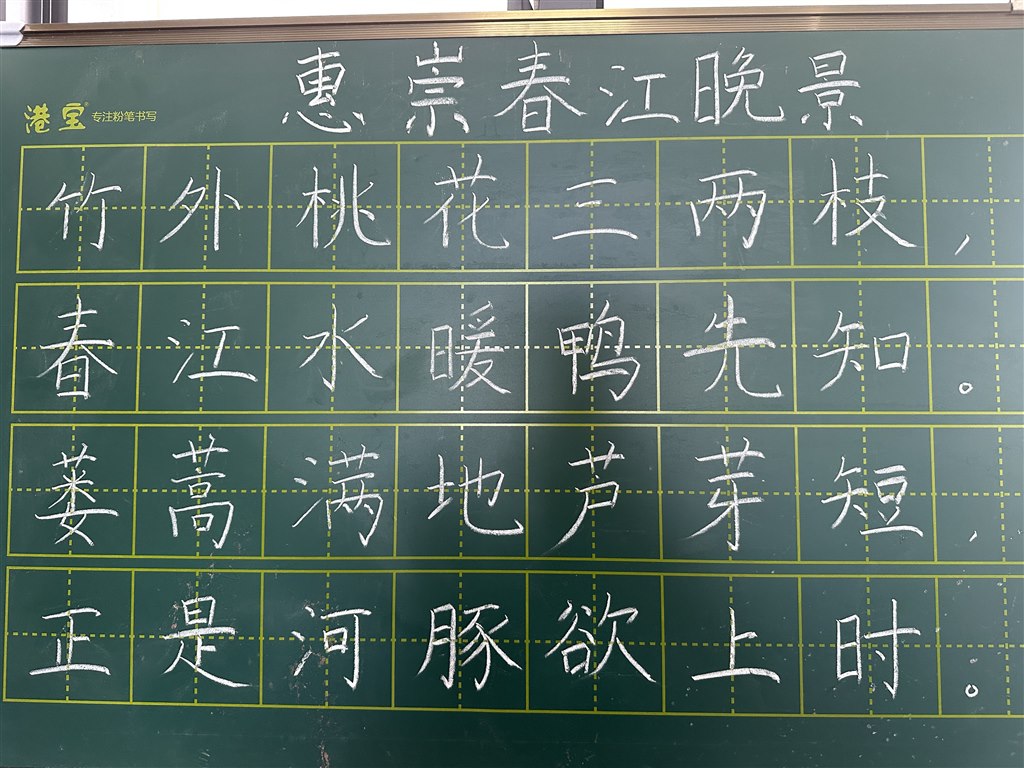 惠崇春江晚景
港宝® 专注粉笔书写
竹外桃花三两枝,
春江水暖鸭先知。
蒌蒿满地芦芽短,
正是河豚欲上时。